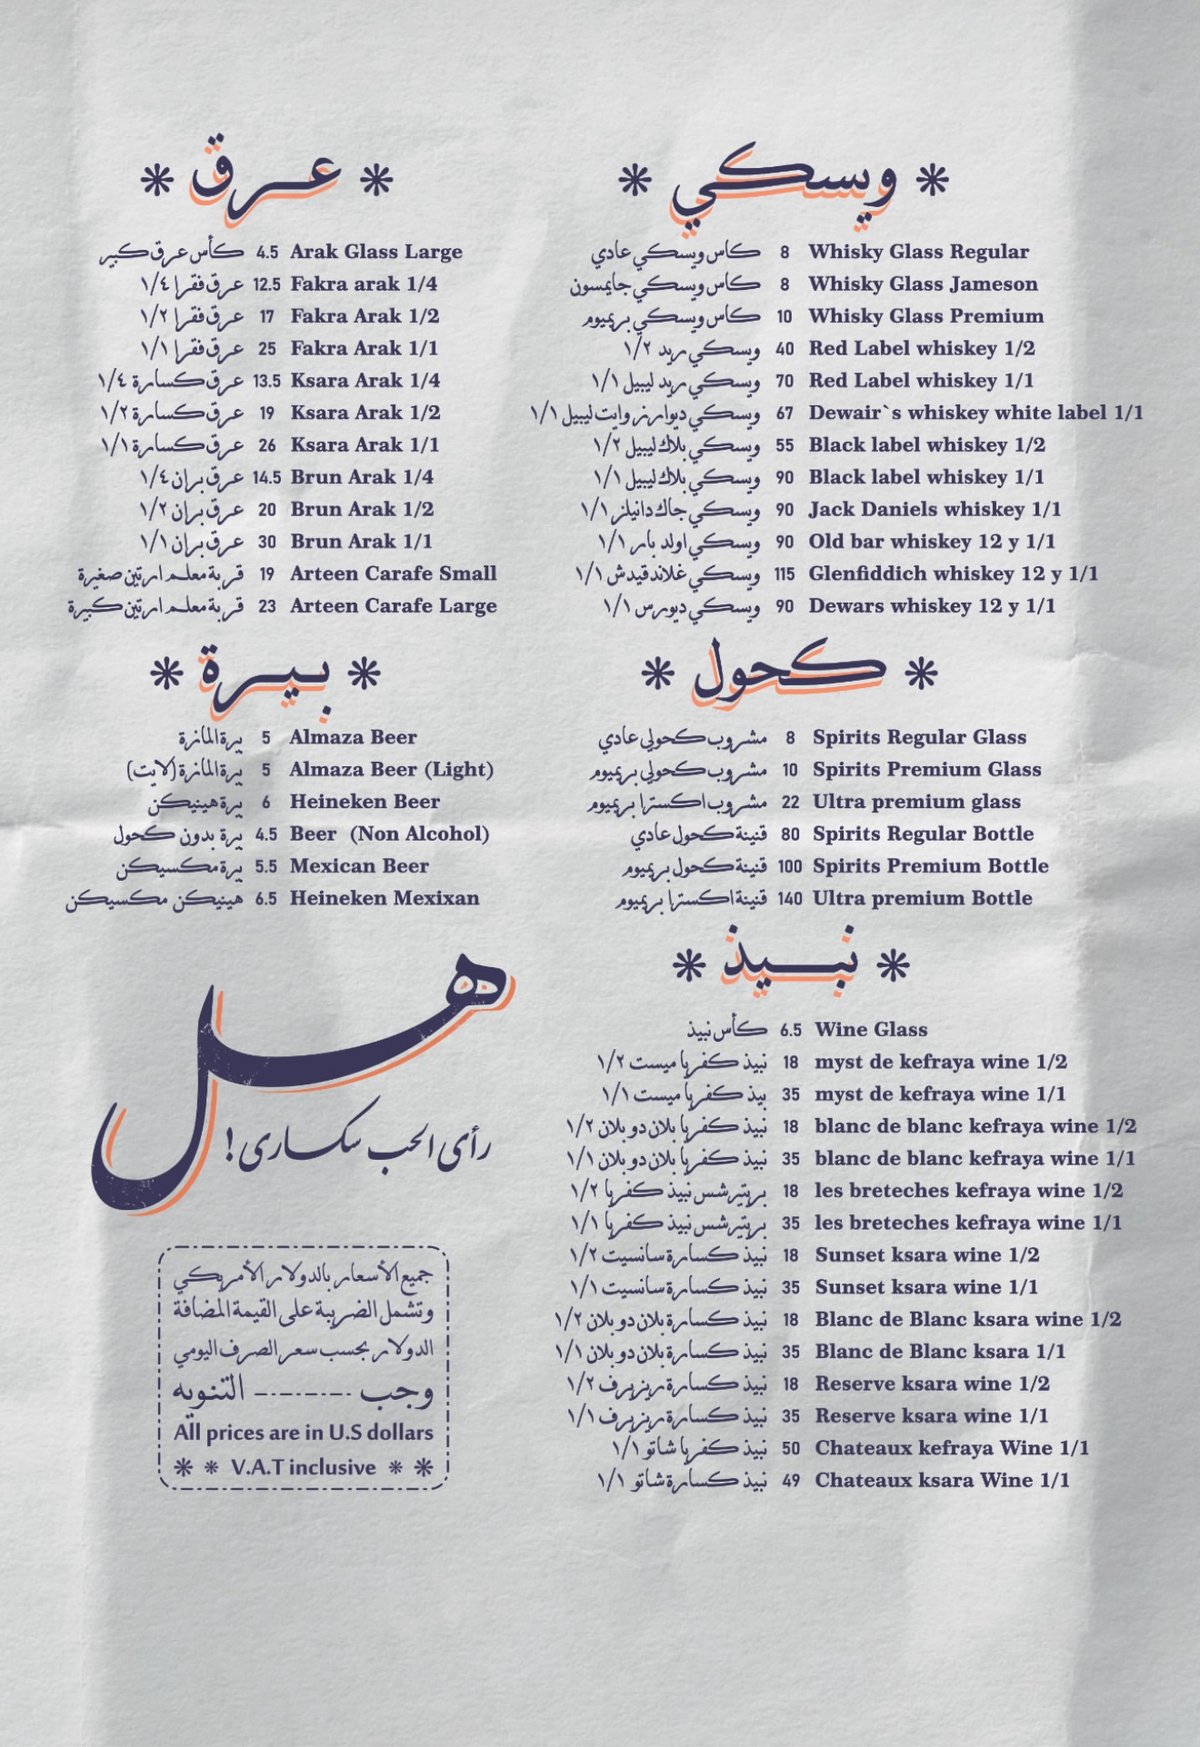 عرق
كأس عرق كبير 4.5 Arak Glass Large
عرق فقرا ١/٤ 12.5 Fakra arak 1/4
عرق فقرا ١/٢ 17 Fakra Arak 1/2
عرق فقرا ١/١ 25 Fakra Arak 1/1
عرق كسارة ١/٤ 13.5 Ksara Arak 1/4
عرق كسارة ١/٢ 19 Ksara Arak 1/2
عرق كسارة ١/١ 26 Ksara Arak 1/1
عرق بران ١/٤ 14.5 Brun Arak 1/4
عرق بران ١/٢ 20 Brun Arak 1/2
عرق بران ١/١ 30 Brun Arak 1/1
قربة معلم ارتين صغيرة 19 Arteen Carafe Small
قربة معلم ارتين كبيرة 23 Arteen Carafe Large
بيرة
بيرة المازة 5 Almaza Beer
بيرة المازة (لايت) 5 Almaza Beer (Light)
بيرة هينيكن 6 Heineken Beer
بيرة بدون كحول 4.5 Beer (Non Alcohol)
بيرة مكسيكن 5.5 Mexican Beer
هينيكن مكسيكن 6.5 Heineken Mexixan
هل
رأى الحب سكارى !
جميع الأسعار بالدولار الأمريكي
وتشمل الضريبة على القيمة المضافة
الدولار بحسب سعر الصرف اليومي
وجب التنويه
All prices are in U.S dollars
V.A.T inclusive
ويسكي
كاس ويسكي عادي 8 Whisky Glass Regular
كاس ويسكي جايمسون 8 Whisky Glass Jameson
كاس ويسكي بريميوم 10 Whisky Glass Premium
ويسكي ريد ١/٢ 40 Red Label whiskey 1/2
ويسكي ريد ليبيل ١/١ 70 Red Label whiskey 1/1
ويسكي ديوارز وايت ليبيل ١/١ 67 Dewair`s whiskey white label 1/1
ويسكي بلاك ليبيل ١/٢ 55 Black label whiskey 1/2
ويسكي بلاك ليبيل ١/١ 90 Black label whiskey 1/1
ويسكي جاك دانيلز ١/١ 90 Jack Daniels whiskey 1/1
ويسكي اولد بار ١/١ 90 Old bar whiskey 12 y 1/1
ويسكي غلاندفيدش ١/١ 115 Glenfiddich whiskey 12 y 1/1
ويسكي ديورس ١/١ 90 Dewars whiskey 12 y 1/1
كحول
مشروب كحولي عادي 8 Spirits Regular Glass
مشروب كحولي بريميوم 10 Spirits Premium Glass
مشروب اكسترا بريميوم 22 Ultra premium glass
قنينة كحول عادي 80 Spirits Regular Bottle
قنينة كحول بريميوم 100 Spirits Premium Bottle
قنينة اكسترا بريميوم 140 Ultra premium Bottle
نبيذ
كأس نبيذ 6.5 Wine Glass
نبيذ كفريا ميست ١/٢ 18 myst de kefraya wine 1/2
بيذ كفريا ميست ١/١ 35 myst de kefraya wine 1/1
نبيذ كفريا بلان دو بلان ١/٢ 18 blanc de blanc kefraya wine 1/2
نبيذ كفريا بلان دو بلان ١/١ 35 blanc de blanc kefraya wine 1/1
بريتيرشس نبيذ كفريا ١/٢ 18 les breteches kefraya wine 1/2
بريتيرشس نبيذ كفريا ١/١ 35 les breteches kefraya wine 1/1
نبيذ كسارة سانسيت ١/٢ 18 Sunset ksara wine 1/2
نبيذ كسارة سانسيت ١/١ 35 Sunset ksara wine 1/1
نبيذ كسارة بلان دو بلان ١/٢ 18 Blanc de Blanc ksara wine 1/2
نبيذ كسارة بلان دو بلان ١/١ 35 Blanc de Blanc ksara 1/1
نبيذ كسارة ريزيرف ١/٢ 18 Reserve ksara wine 1/2
نبيذ كسارة ريزيرف ١/١ 35 Reserve ksara wine 1/1
نبيذ كفريا شاتو ١/١ 50 Chateaux kefraya Wine 1/1
نبيذ كسارة شاتو ١/١ 49 Chateaux ksara Wine 1/1